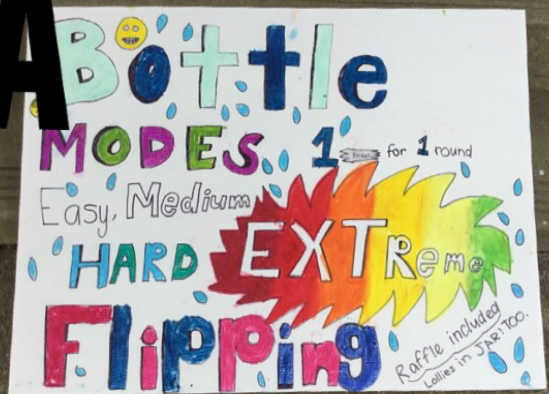 A
Bottle
MODES 1 for 1 round
Easy, Medium
HARD EXTreme
Flipping
Raffle included
Lollies in JAR! TOO.